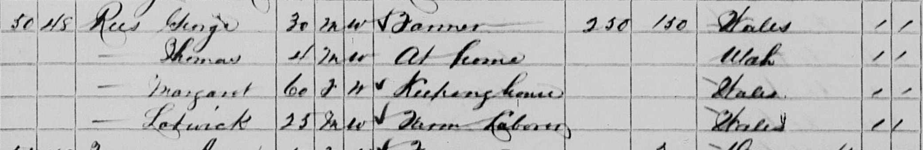 50 48 Rees George 30 M W Farmer 250 150 Wales / /
— Thomas 4 M W At home Utah / /
— Margaret 60 F W Keeping house Wales / /
— Lodwick 25 M W Farm Laborer Wales / /